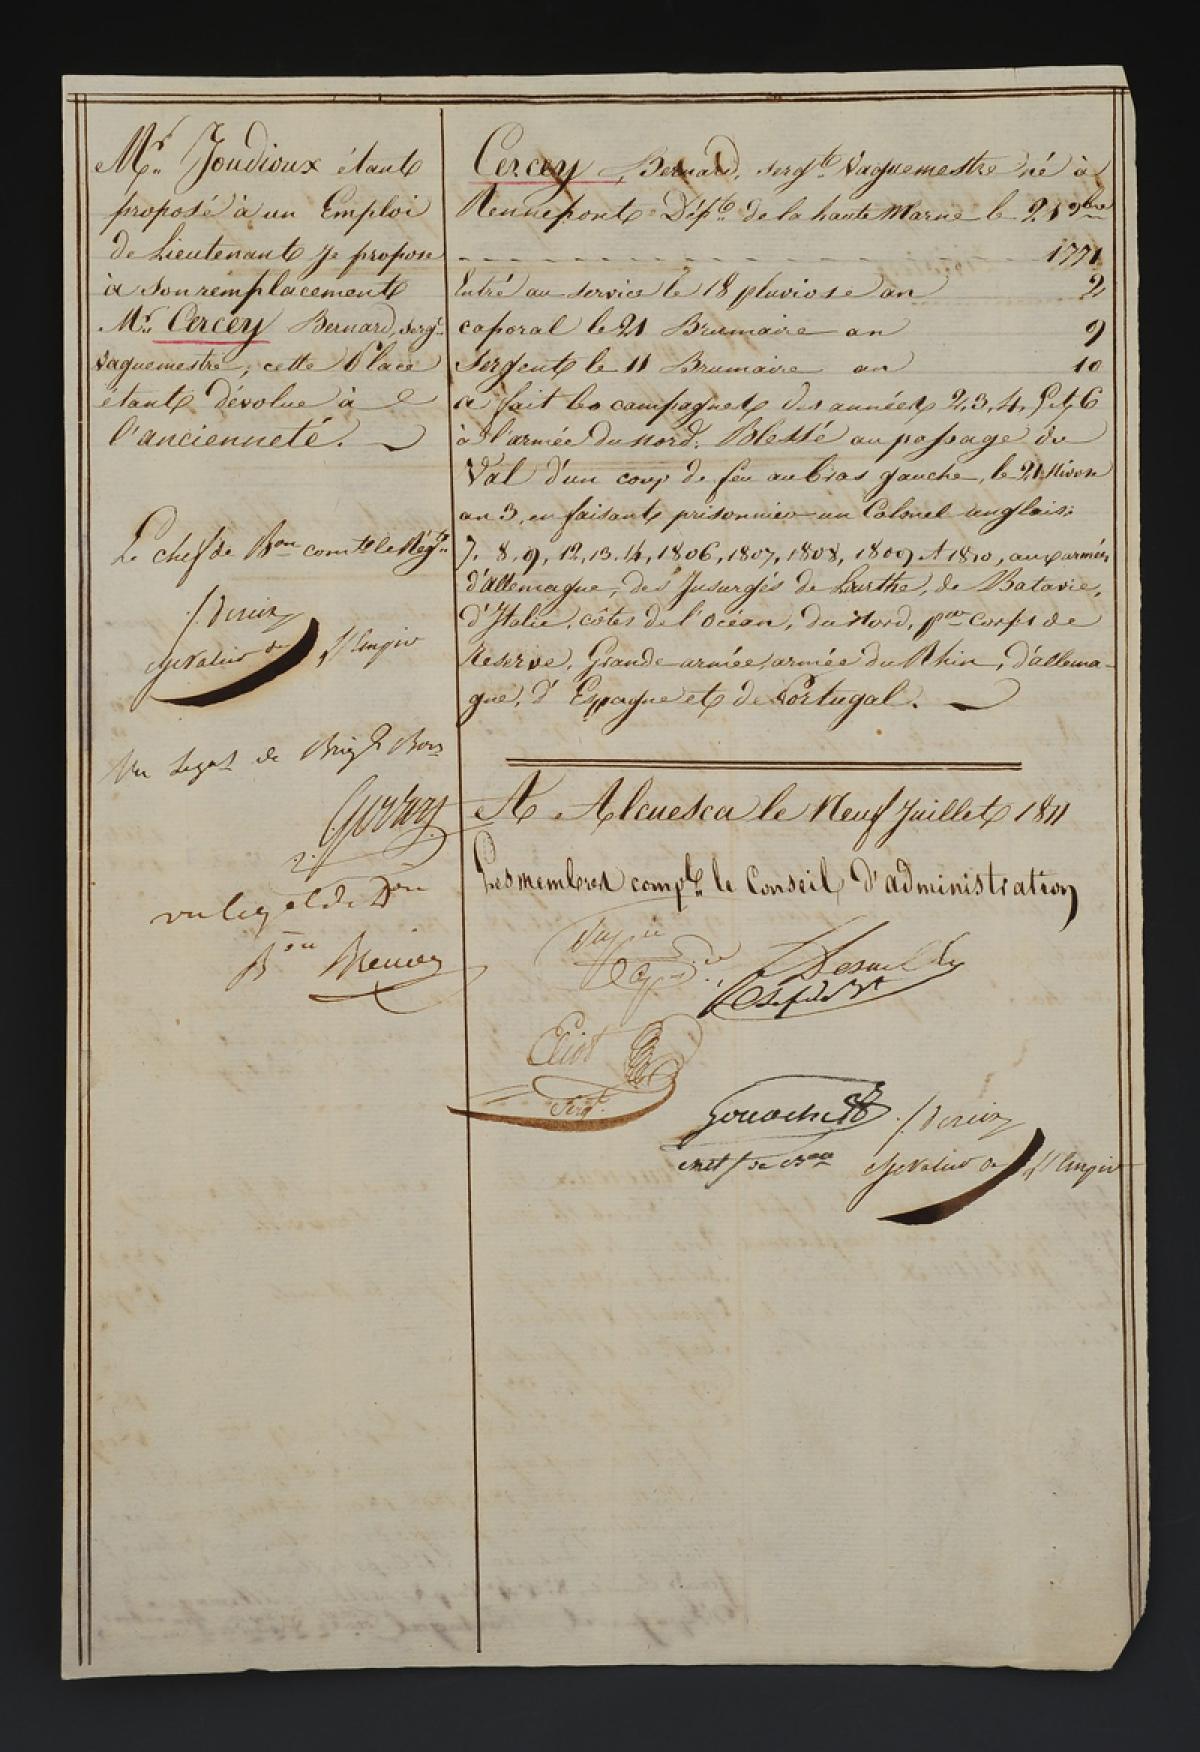 Mr. Joudioux étant
proposé à un Emploi
de Lieutenant je propose
à son remplacement
Mr. Cercey Bernard, Sergt.
Vaguemestre, cette Place
étant dévolue à
l'ancienneté.
Le chef de Bon comdt. le Régt.
chevalier de l'Empire
Vu Legat de Brigde Bon
vu le gal de Don
Bon
Cercey, Bernard, sergt. Vaguemestre né à
Rennepont Dépt. de la haute Marne le 21 9bre
1771
Entré au service le 18 pluviose an 2
caporal le 21 Brumaire an 9
Sergent le 11 Brumaire an 10
a fait les campagnes des années 2, 3, 4, 5 et 6
à l'armée du nord. Blessé au passage du
Val d'un coup de feu au bras gauche, le 21 Nivose
an 3, en faisant prisonnier un Colonel anglais;
7, 8, 9, 12, 13, 14, 1806, 1807, 1808, 1809 et 1810, aux armées
d'allemagne, des Insurgés de Larthe, de Batavie,
d'Italie, côtes de l'océan, du Nord, per corps de
Reserve, Grande armée, armée du Rhin, d'allema-
gne, d'Espagne et de Portugal.
A Alcuesca le Neuf Juillet 1811
Les membres compt. le Conseil d'administration
Eliot
Sergt.
chef de Bon
chevalier de l'Empire